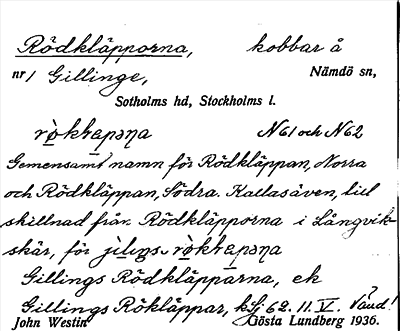 Rödkläpporna, kobbar å
nr 1 Gillinge, Nämdö sn,
Sotholms hd, Stockholms l.
N61 och N62
Gemensamt namn för Rödkläppan, Norra
och Rödkläppan, Södra. Kallas även, till
skillnad från Rödkläpporna i Långvik-
skär, för
Gillings Rödkläpparna, ek
Gillings Rökläppar, 62. 11. V. Vänd!
John Westin Gösta Lundberg 1936.